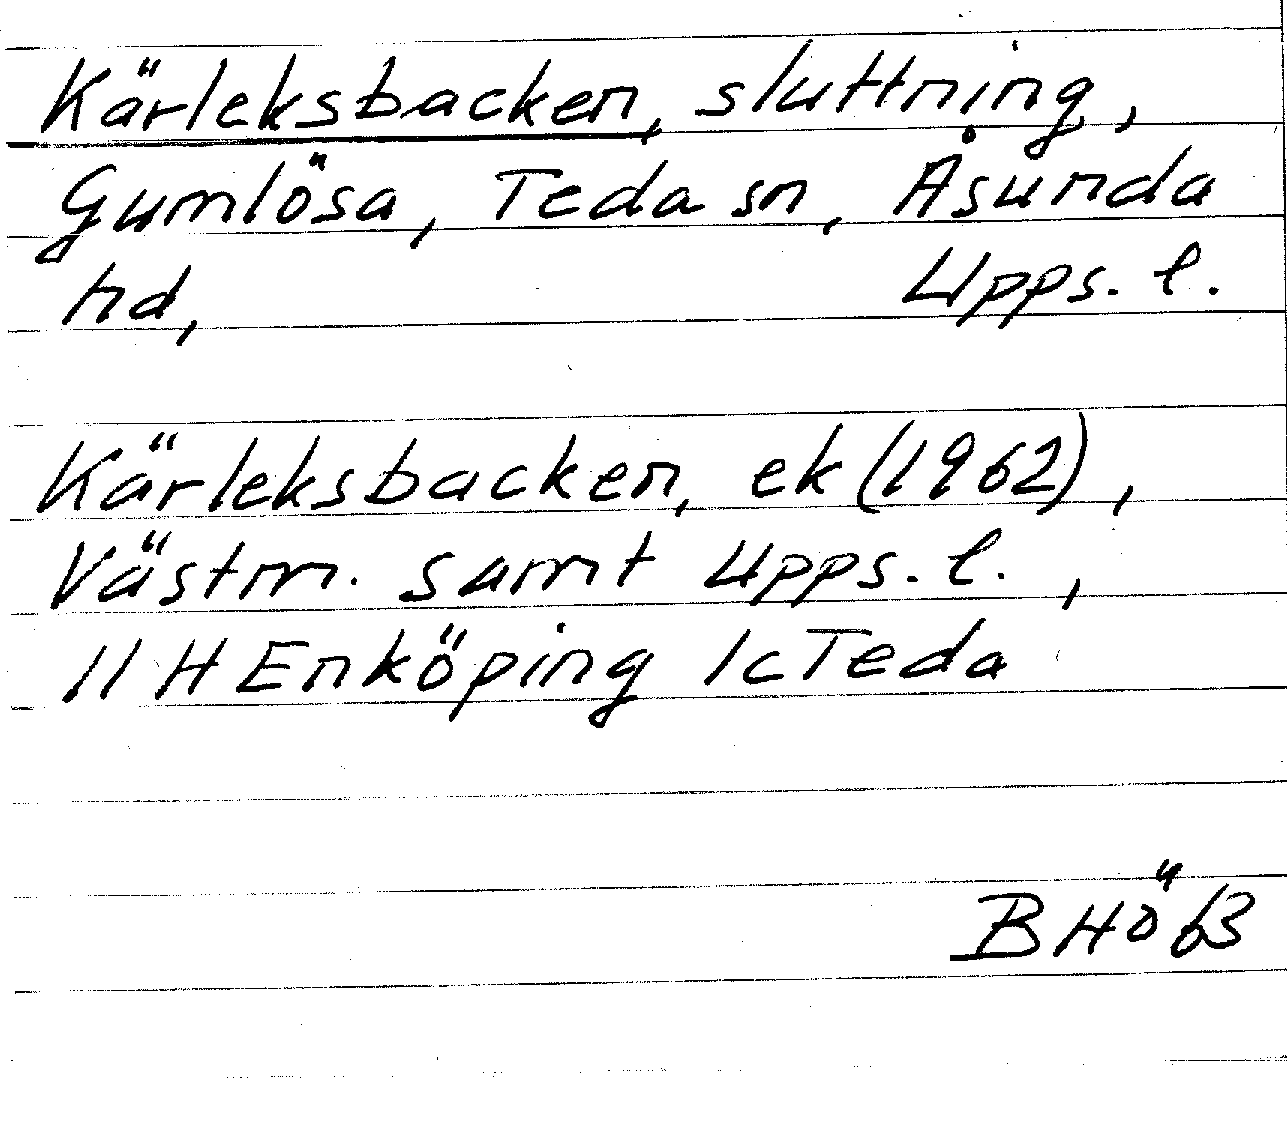 Kärleksbacken, sluttning,
Gumlösa, Teda sn, Åsunda
hd, Upps. l.
Kärleksbacken, ek (1962),
Västm. samt Upps. l.,
11 H Enköping 1c Teda
BHö 63